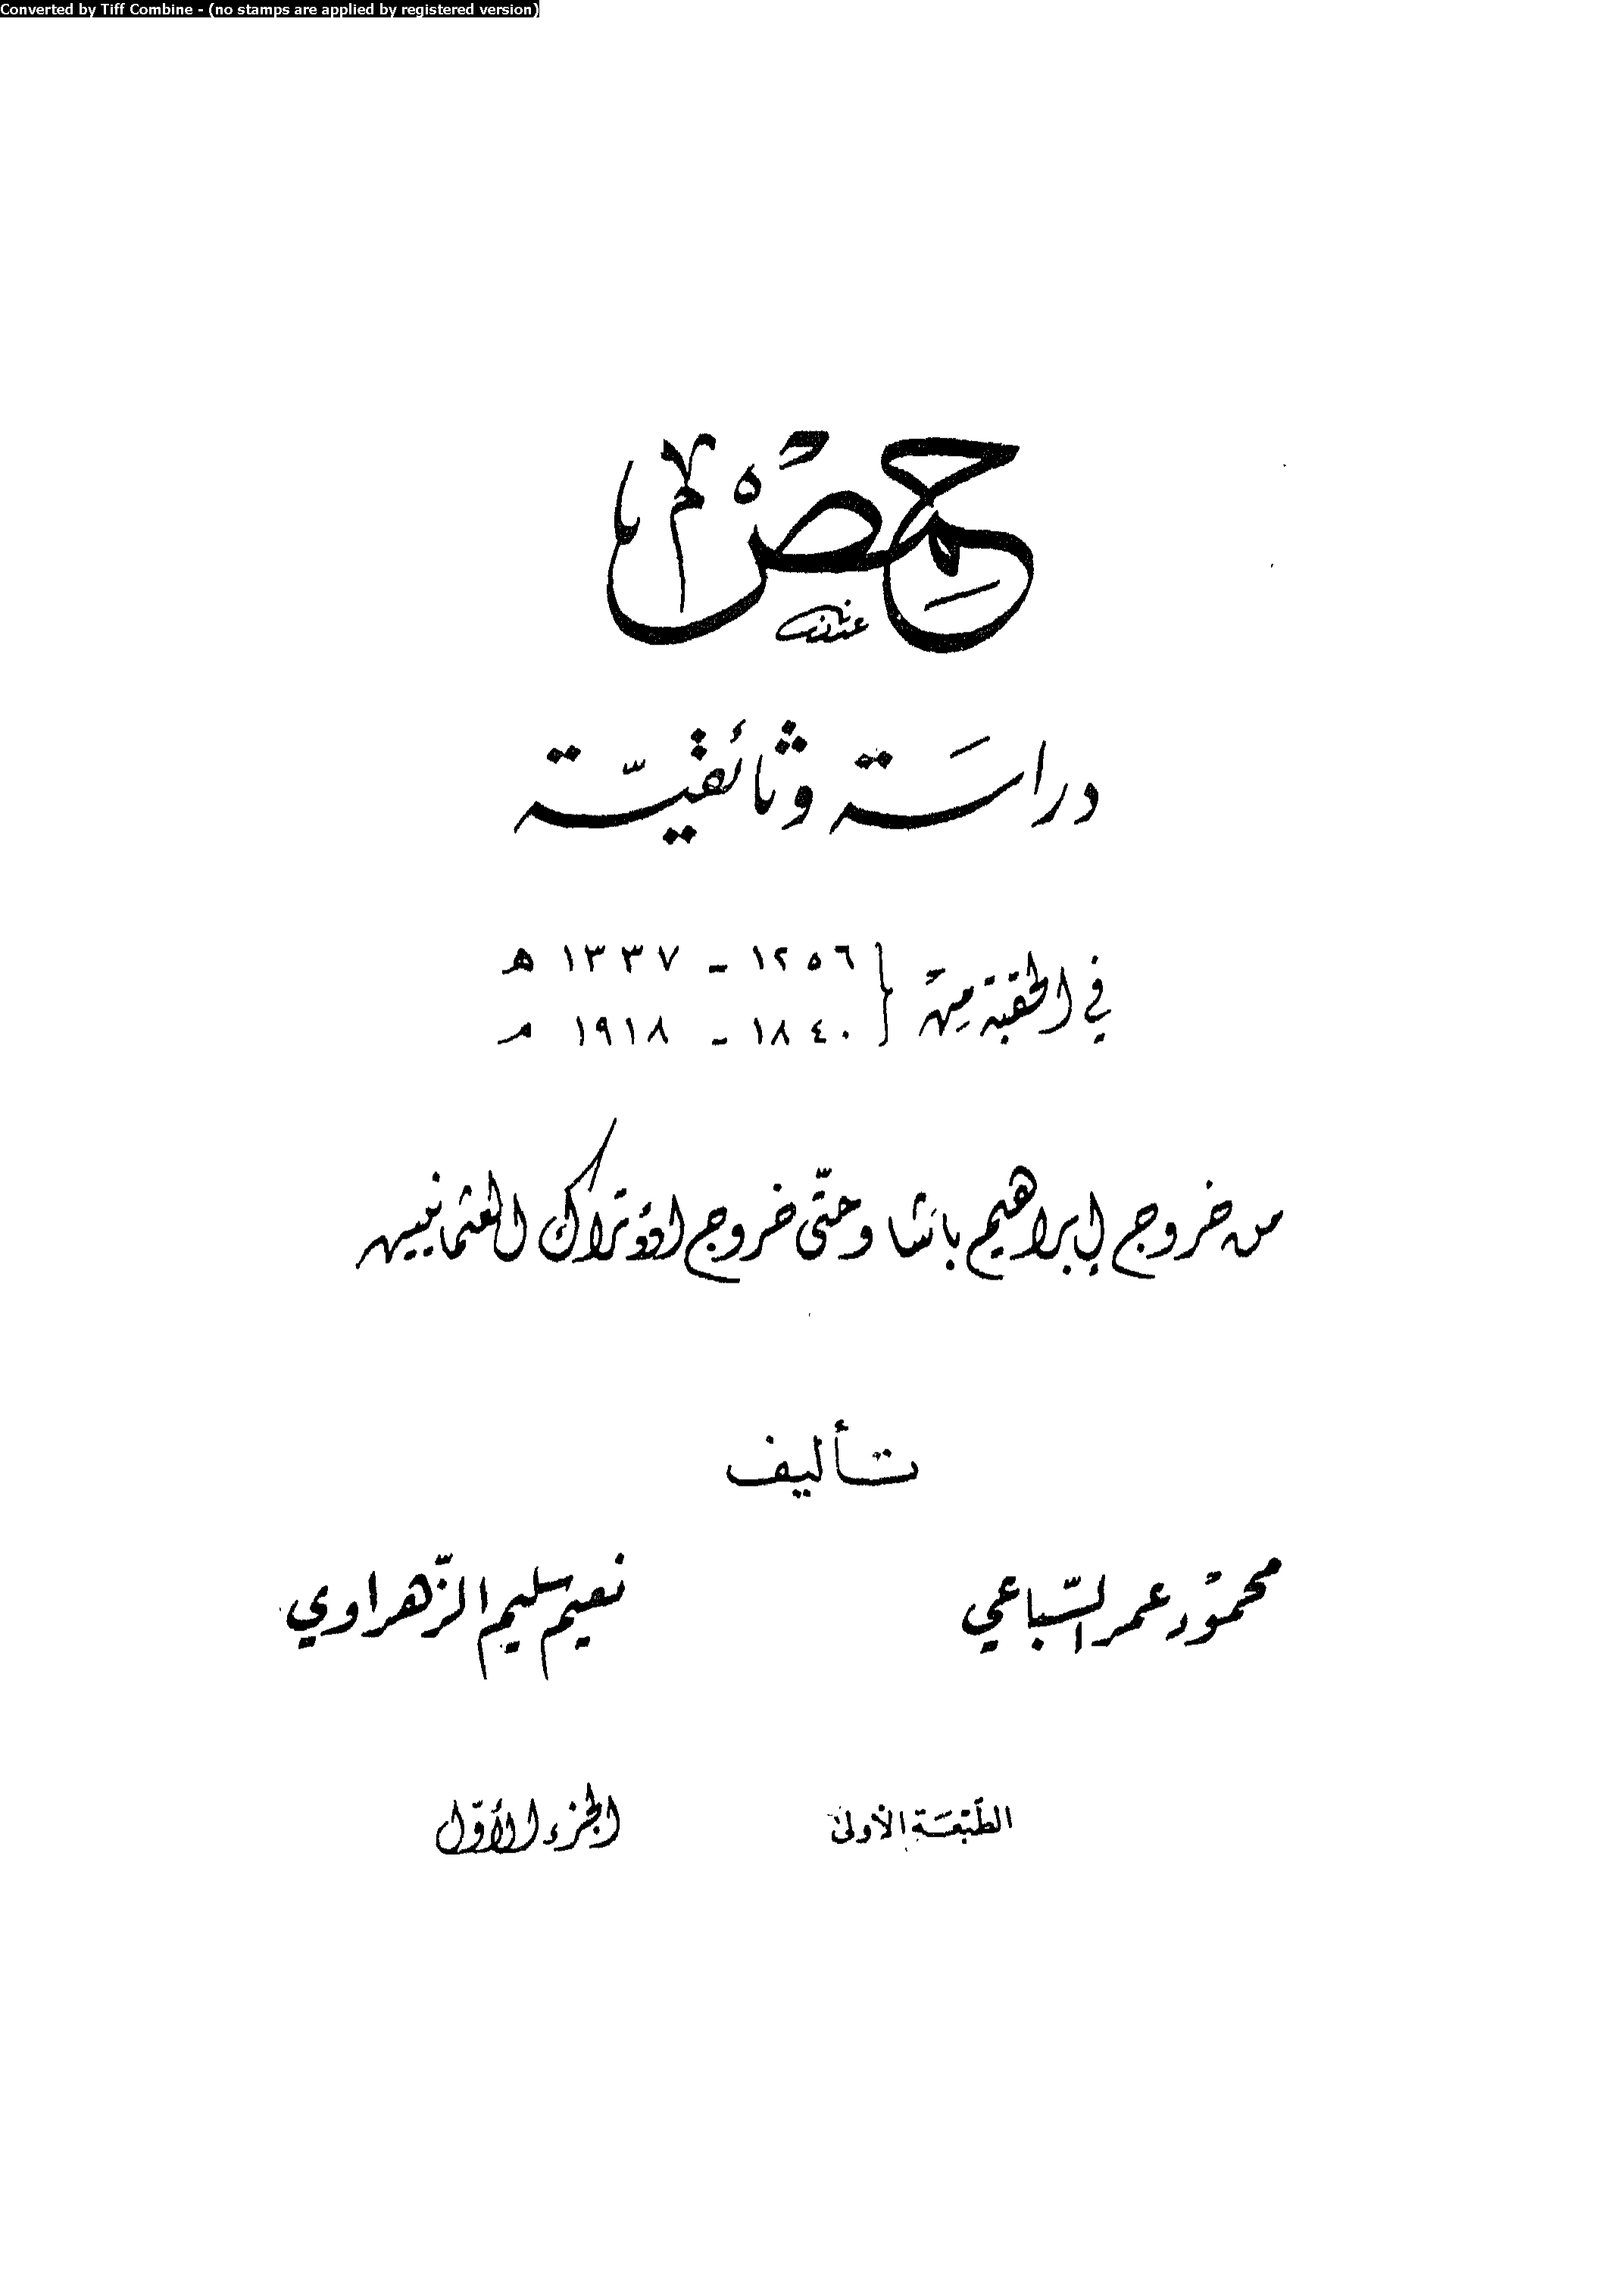 Converted by Tiff Combine - (no stamps are applied by registered version)
حِمْصُ
عدنان
دراسَة وثائقيّة
في الحقبة مِنْ { ١٢٥٦ - ١٣٣٧ هـ
١٨٤٠ - ١٩١٨ م
من خروج إبراهيم باشا وحتّى خروج الأتراك العثمانيين
تأليف
محمُود عمر السّباعي نعيم سليم الزّهراوي
الطَّبْعَة الأولىٰ الجزء الأوّل